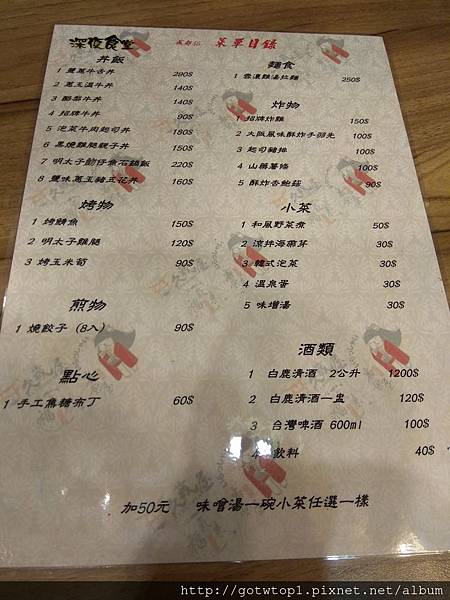 深夜食堂 成都路 菜單目錄
丼飯
1 鹽蔥牛舌丼 290$
2 蔥玉溫牛丼 140$
3 酪梨牛丼 140$
4 招牌牛丼 90$
5 泡菜牛肉起司丼 180$
6 黑燒雞腿親子丼 150$
7 明太子魩仔魚石鍋飯 220$
8 鹽味蔥玉豬五花丼 160$
烤物
1 烤鯖魚 150$
2 明太子雞腿 120$
3 烤玉米筍 90$
煎物
1 燒餃子 (8入) 90$
點心
1 手工焦糖布丁 60$
麵食
1 雲濃雞湯拉麵 250$
炸物
1 招牌炸雞 150$
2 大阪風味酥炸手羽先 100$
3 起司豬排 100$
4 山藥薯條 100$
5 酥炸杏鮑菇 90$
小菜
1 和風野菜煮 50$
2 涼拌海帶芽 30$
3 韓式泡菜 30$
4 溫泉蛋 30$
5 味增湯 30$
酒類
1 白鹿清酒 2公升 1200$
2 白鹿清酒一盅 120$
3 台灣啤酒 600ml 100$
4 飲料 40$
加50元 味噌湯一碗小菜任選一樣
http://gotwtop1.pixnet.net/album